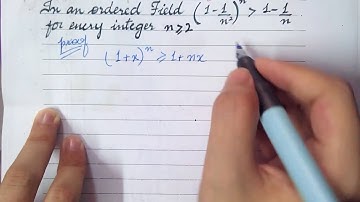 In an ordered Field (1-1/n²)ⁿ > 1-1/n
for every integer n≥2
proof
(1+x)ⁿ ≥ 1+nx